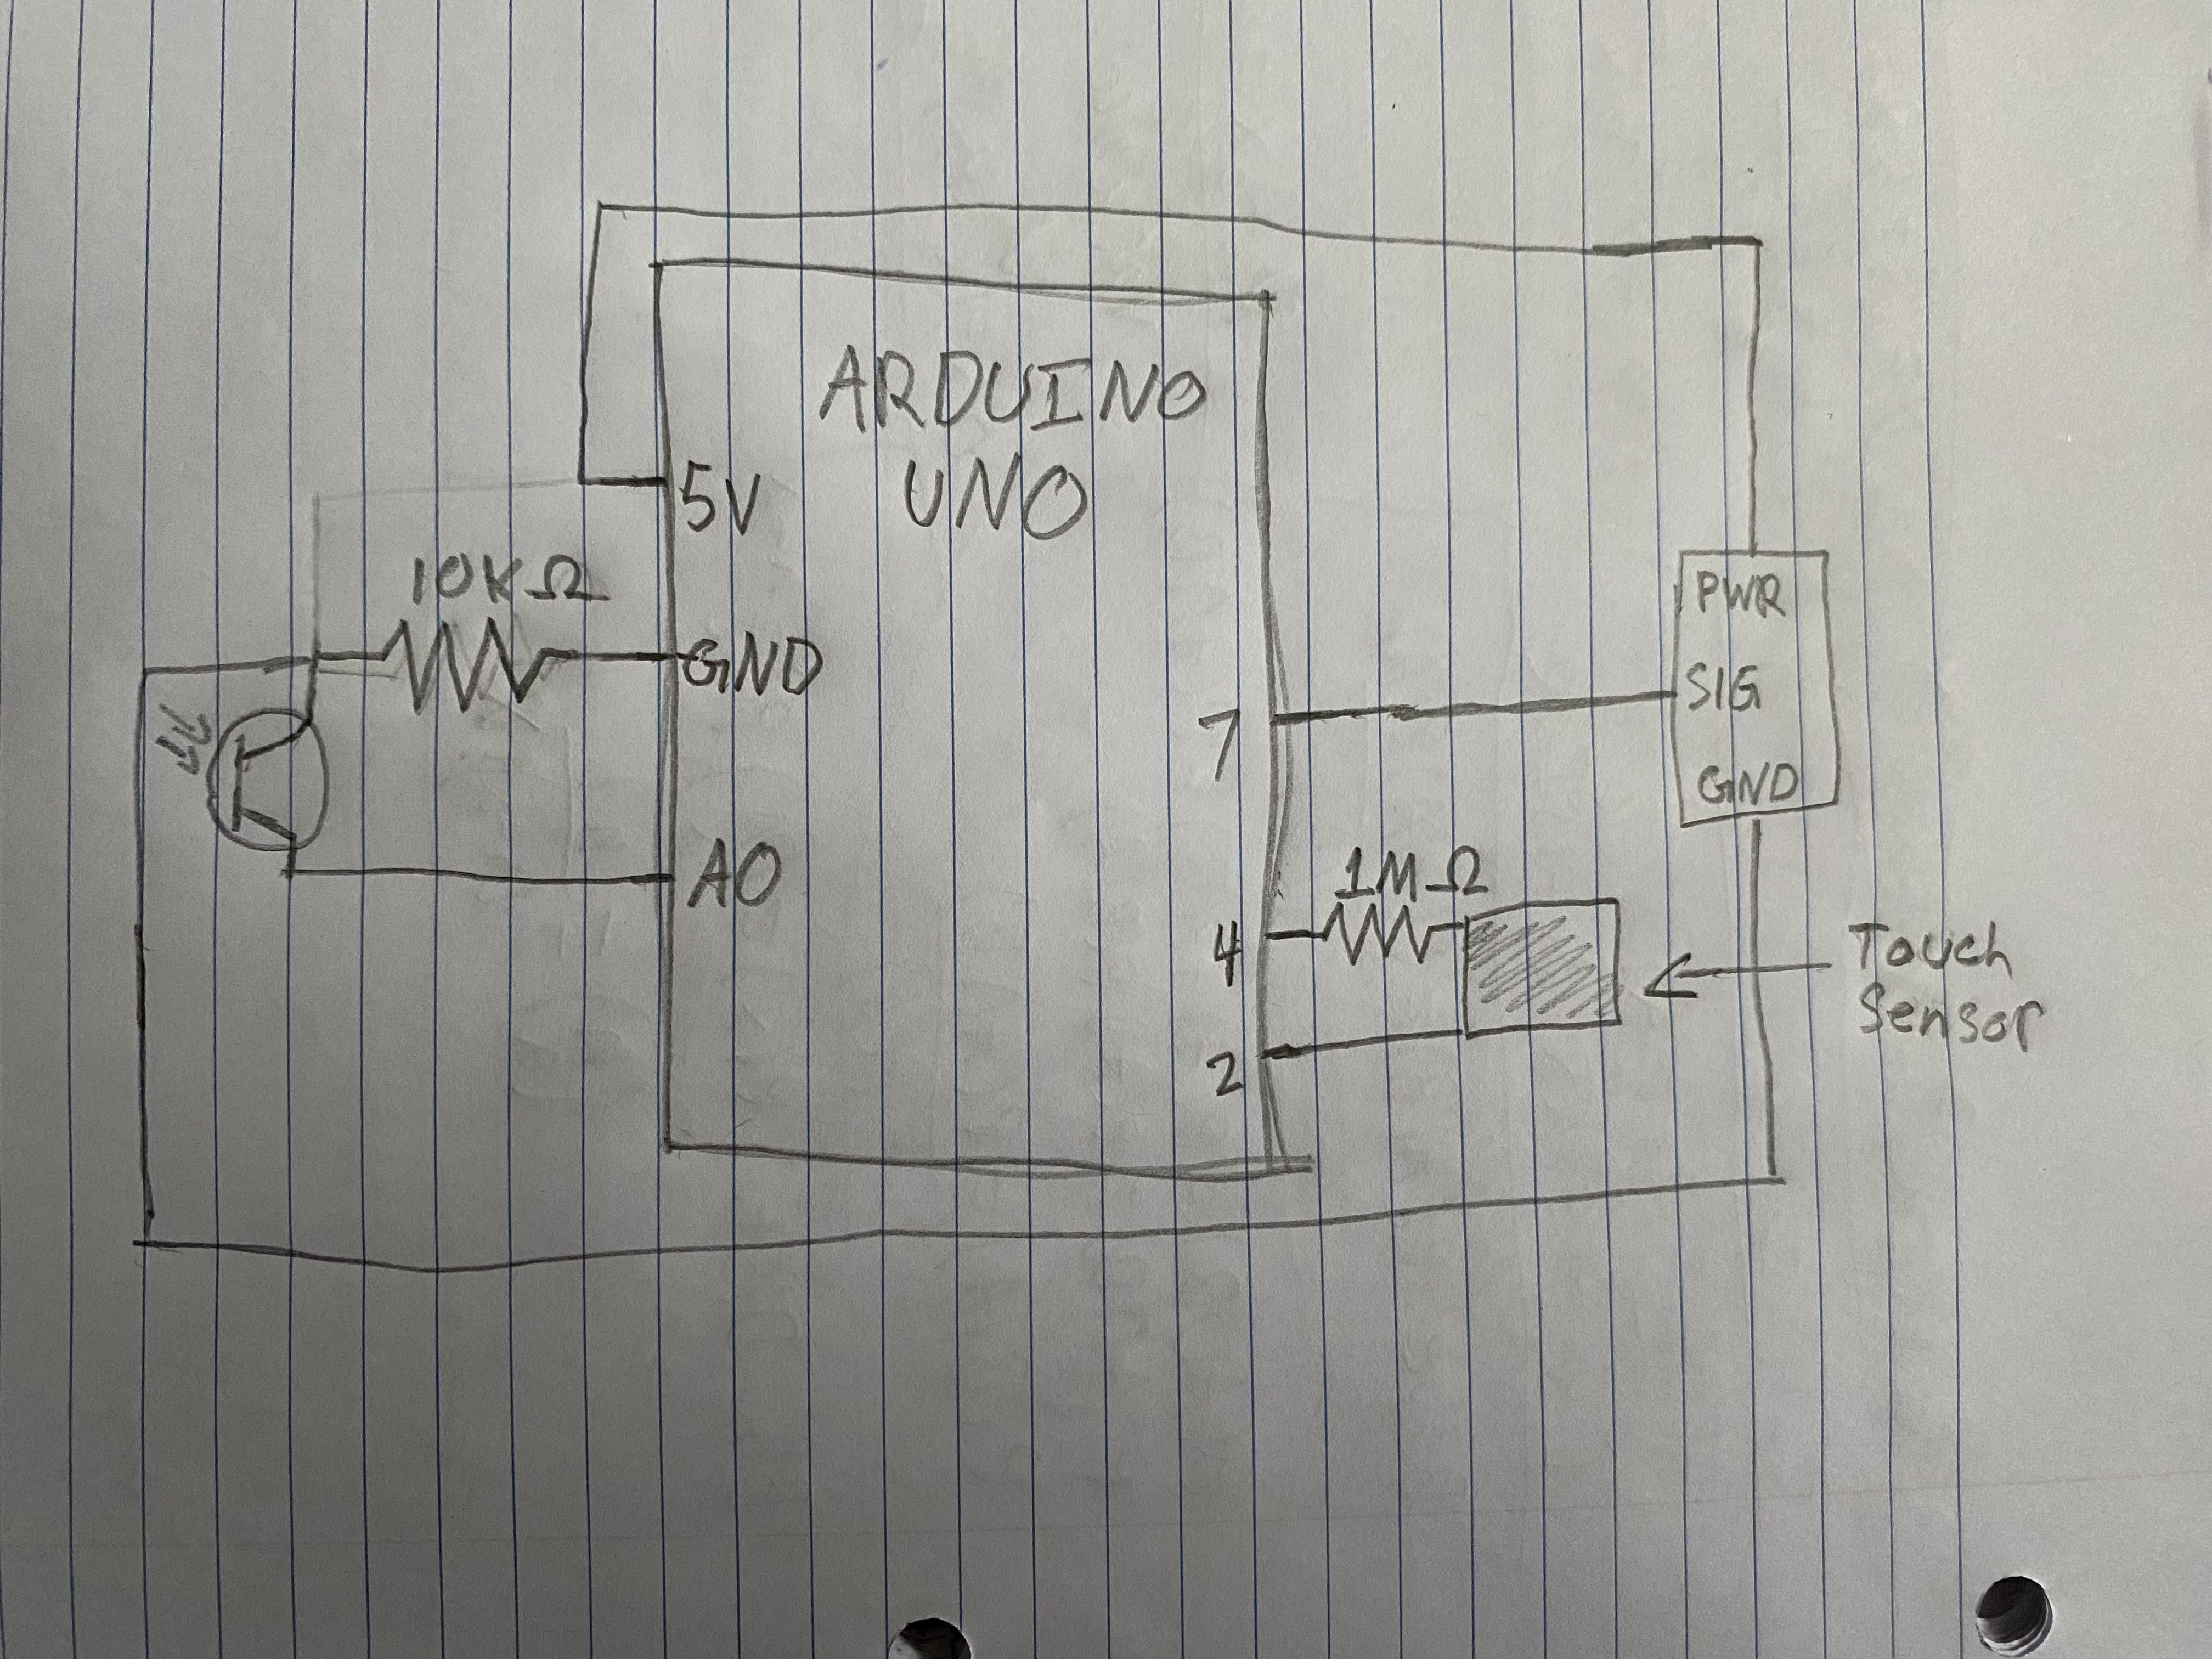 ARDUINO
UNO
5V
10KΩ
GND
A0
7
4
2
PWR
SIG
GND
1MΩ
Touch
Sensor